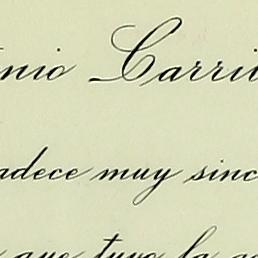 nio Carri
adece muy sinc
que tuvo la